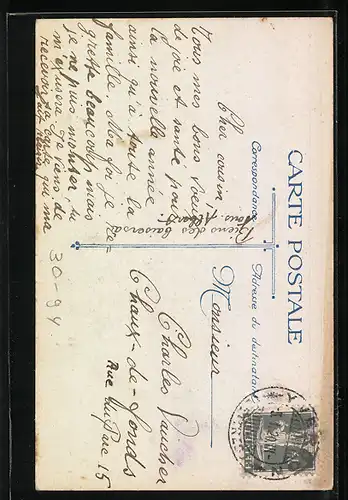 CARTE POSTALE
Correspondance
Adresse du destinataire
Cher cousin
Tous mes bons voeux
de joie et santé pour
la nouvelle année
ainsi qu'à toute la
famille. Ma foi je re-
grette beaucoup mais
je ne puis monter tu
m'excusera je viens de
recevoir ta carte qui m'a
fait plaisir
Riens des baisers à
tous Albert
Monsieur
Charles Vaucher
Chaux-de-Fonds
Rue du Parc 15
30-94